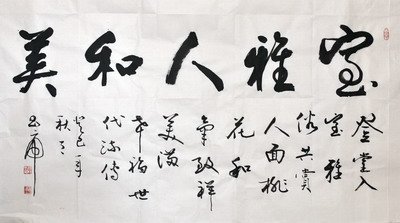 室雅人和美
登堂入
室雅
俗共賞
人面桃
花和
氣致祥
美滿
幸福世
代流傳
癸巳年
秋